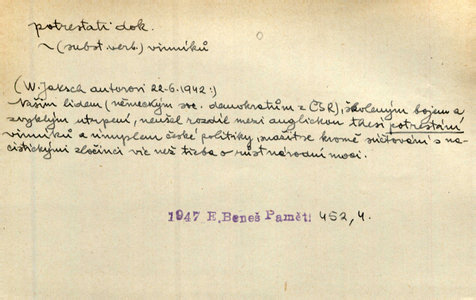 potrestati dok.
~ (subst. verb.) vinníků
(W. Jaksch autorovi 22-6.1942:)
Našim lidem (německým soc. demokratům z ČSR), školeným bojem a
zvyklým utrpení, neušel rozdíl mezi anglickou thesí potrestání
vinníků a úmyslem české politiky, snažit se kromě súčtování s na-
cistickými zločinci víc než třeba o růst národní moci.
1947 E. Beneš Paměti 452, 4.